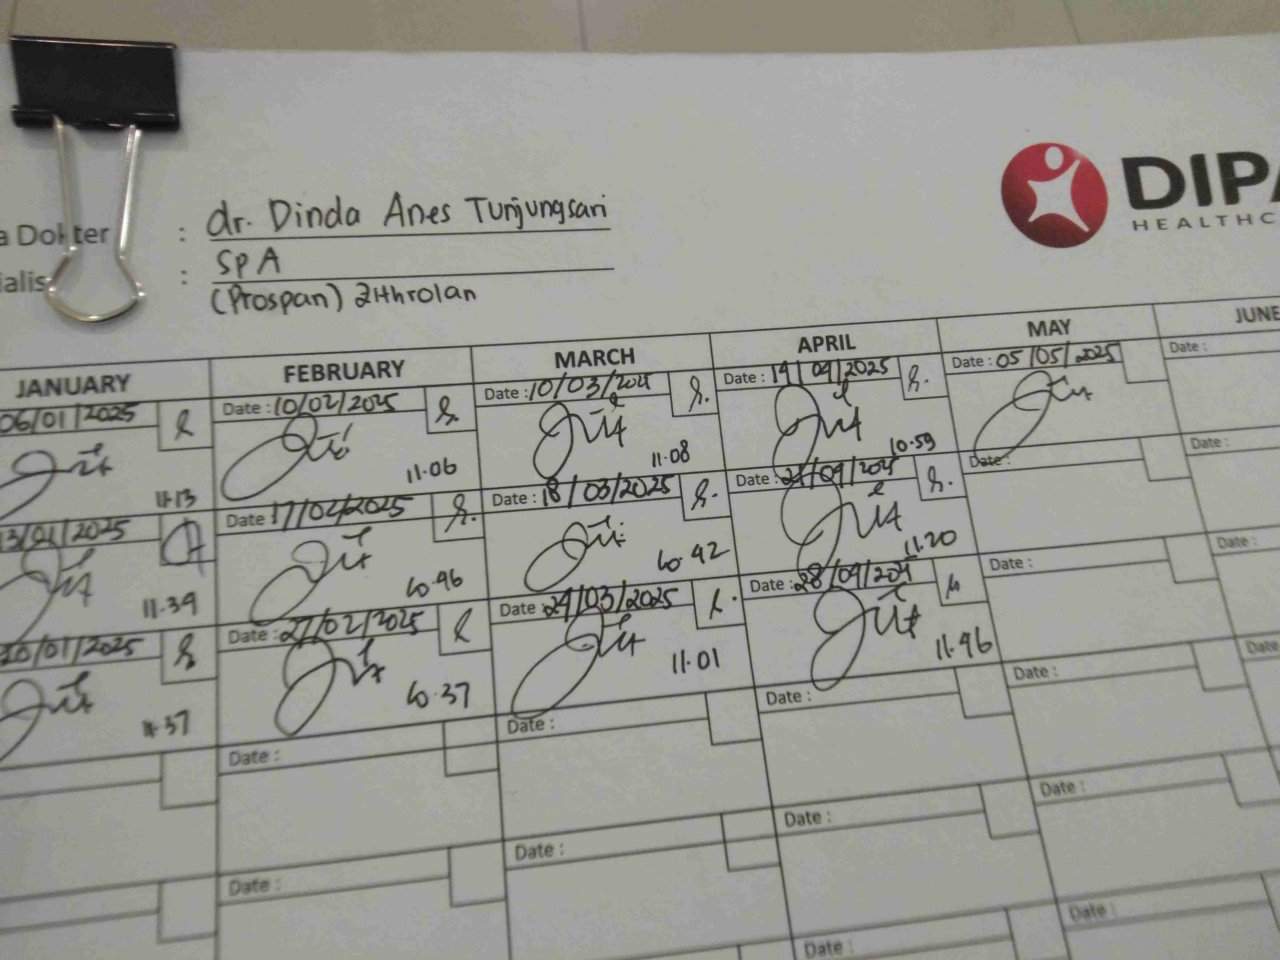 DIPA
HEALTHC
a Dokter : dr. Dinda Anes Tunjungsari
ialis : SpA
(Prospan) Zithrolan
JANUARY FEBRUARY MARCH APRIL MAY JUNE
06/01/2025 Date : 10/02/2025 Date : 10/03/2025 Date : 14/04/2025 Date : 05/05/2025 Date :
11.13 11.06 11.08 10.59
13/01/2025 Date 17/02/2025 Date : 18/03/2025 Date : 21/04/2025 Date : Date :
11.34 10.46 10.42 11.20
20/01/2025 Date : 27/02/2025 Date : 24/03/2025 Date : 28/04/2025 Date : Date :
11.37 10.37 11.01 11.46
Date : Date : Date : Date : Date
Date : Date : Date : Date :
Date : Date :